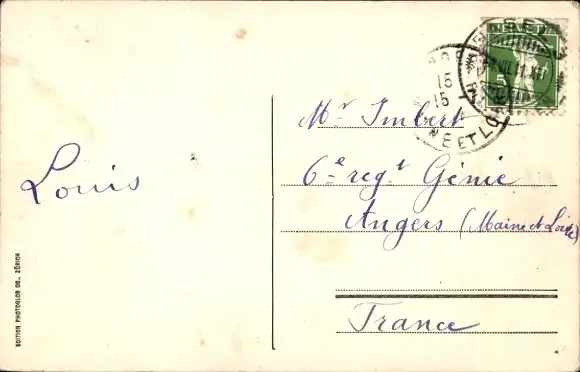 Louis
Mr Imbert
6e regt Génie
Angers (Maine et Loire)
France
EDITION PHOTOGLOB CO., ZÜRICH
15
15
ET LO
5